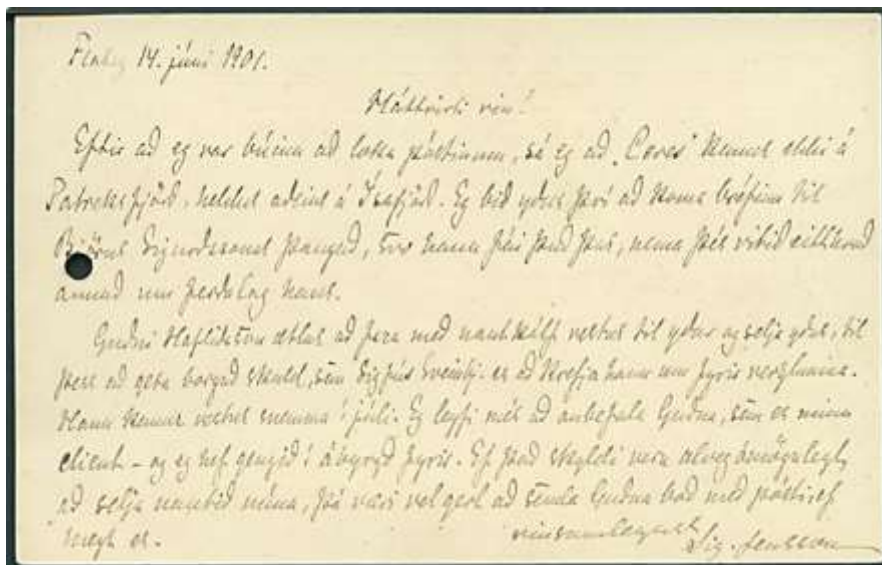 Flatey 14. júní 1901.
Háttvirti vin!
Eftir að eg var búinn að loka póstinum, sé eg að "Ceres" kemur ekki á
Patreksfjörð, heldur aðeins á Ísafjörð. Eg bið yður því að koma bréfinu til
Björns Sigurðssonar þangað, svo hann fái það þar, nema þér vitið eitthvað
annað um ferðalag hans.
Guðni Hafliðason ætlar að fara með nautkálf vestur til yðar og selja yður, til
þess að geta borgað skuld, sem Sigfús Sveinbj. er að krefja hann um fyrir verzlunina.
Hann kemur vestur snemma í júlí. Eg leyfi mér að anbefala Guðna, sem er minn
client - og eg hef gengið í ábyrgð fyrir. Ef það skyldi vera alveg ómögulegt,
að selja nautið núna, þá væri vel gert að senda Guðna boð með pósti, ef
hægt er.
vinsamlegast
Sig. Jensson